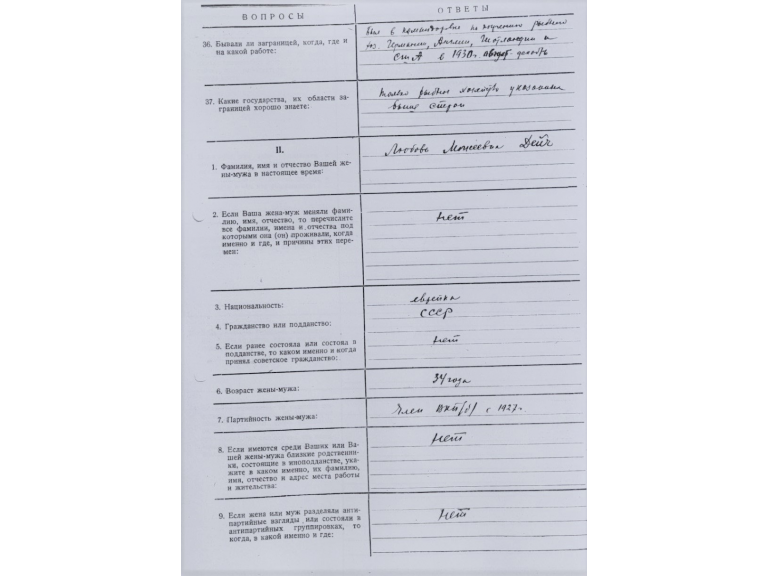 ВОПРОСЫ
ОТВЕТЫ
36. Бывали ли заграницей, когда, где и
на какой работе:
Был в командировке по изучению рыбного
хоз. Германии, Англии, Шотландии и
США в 1930г. август декабрь
37. Какие государства, их области за-
границей хорошо знаете:
только рыбное хозяйство указанных
выше стран
II.
1. Фамилия, имя и отчество Вашей же-
ны-мужа в настоящее время:
Любовь Моисеевна Дейч
2. Если Ваша жена-муж меняли фами-
лию, имя, отчество, то перечислите
все фамилии, имена и отчества под
которыми она (он) проживали, когда
именно и где, и причины этих пере-
мен:
нет
3. Национальность:
еврейка
4. Гражданство или подданство:
СССР
5. Если ранее состояла или состоял в
подданстве, то каком именно и когда
принял советское гражданство:
нет
6. Возраст жены-мужа:
34 года
7. Партийность жены-мужа:
Член ВКП(б) с 1927г.
8. Если имеются среди Ваших или Ва-
шей жены-мужа близкие родственни-
ки, состоящие в иноподданстве, ука-
жите в каком именно, их фамилию,
имя, отчество и адрес места работы
и жительства:
нет
9. Если жена или муж разделяли анти-
партийные взгляды или состояли в
антипартийных группировках, то
когда, в какой именно и где:
нет